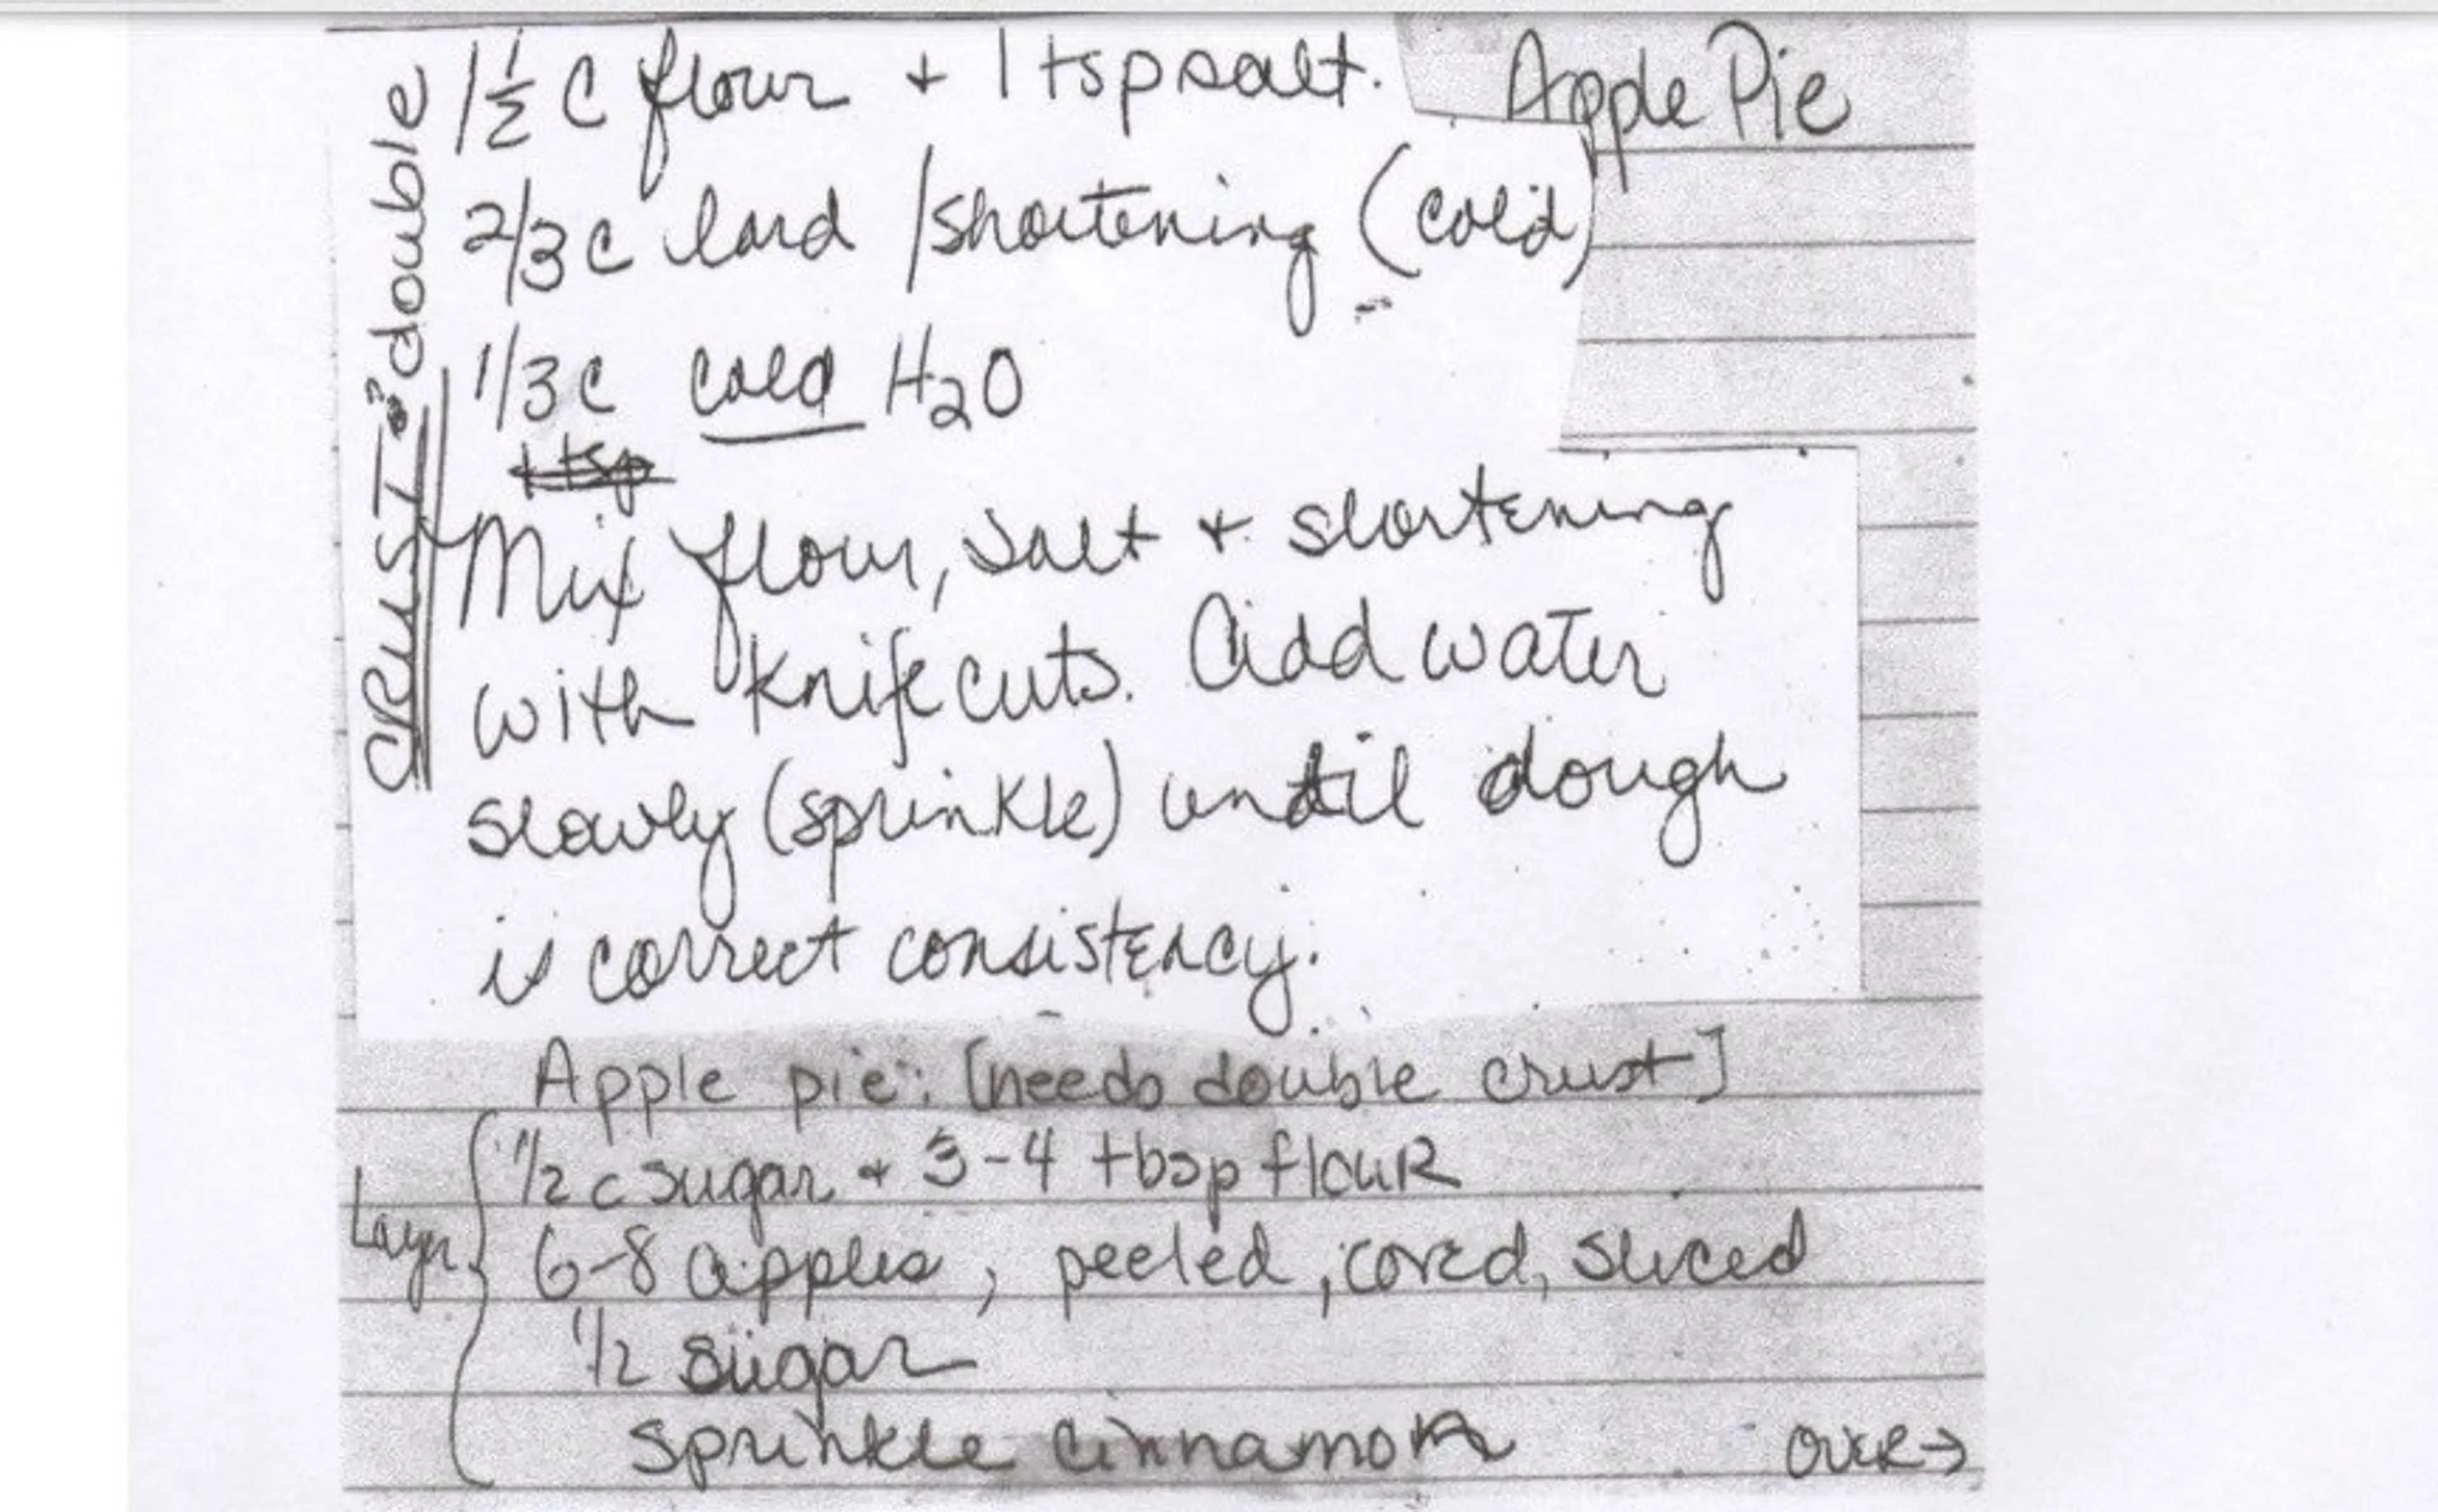 Apple Pie
CRUST: double
1 1/2 C flour + 1 tsp salt.
2/3 C lard / shortening (cold)
1/3 C cold H2O
1 tsp
Mix flour, salt + shortening
with knife cuts. Add water
slowly (sprinkle) until dough
is correct consistency.
Apple pie: [needs double crust]
Layer
1/2 c sugar + 3-4 tbsp flouR
6-8 apples, peeled, cored, sliced
1/2 sugar
sprinkle cinnamon
OVER→